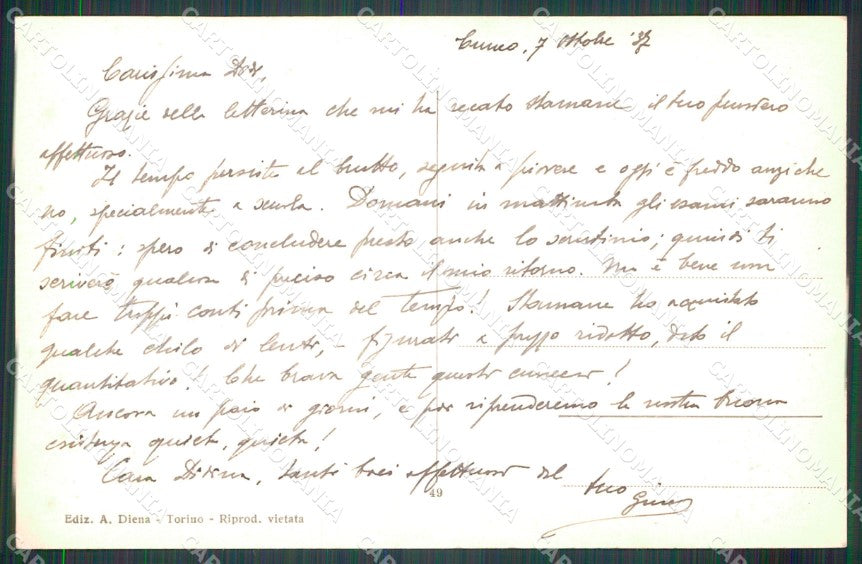 Cuneo, 7 Ottobre '37
Carissima Didi,
Grazie della letterina che mi ha recato stamane il tuo pensiero
affettuoso.
Il tempo persiste al brutto, seguita a piovere e oggi è freddo anziche
no, specialmente a scuola. Domani in mattinata gli esami saranno
finiti: spero di concludere presto anche lo scrutinio; quindi ti
scriverò qualcosa di preciso circa il mio ritorno. Ma è bene non
fare troppi conti prima del tempo! Stamane ho acquistato
qualche chilo di lenti, - figurati a prezzo ridotto, dato il
quantitativo! Che brava gente questi cuneesi!
Ancora un paio di giorni, e poi riprenderemo la nostra buona
esistenza quieta, quieta!
Cara Didina, tanti baci affettuosi dal
tuo
Gino
49
Ediz. A. Diena - Torino - Riprod. vietata
CARTOLINOMANIA